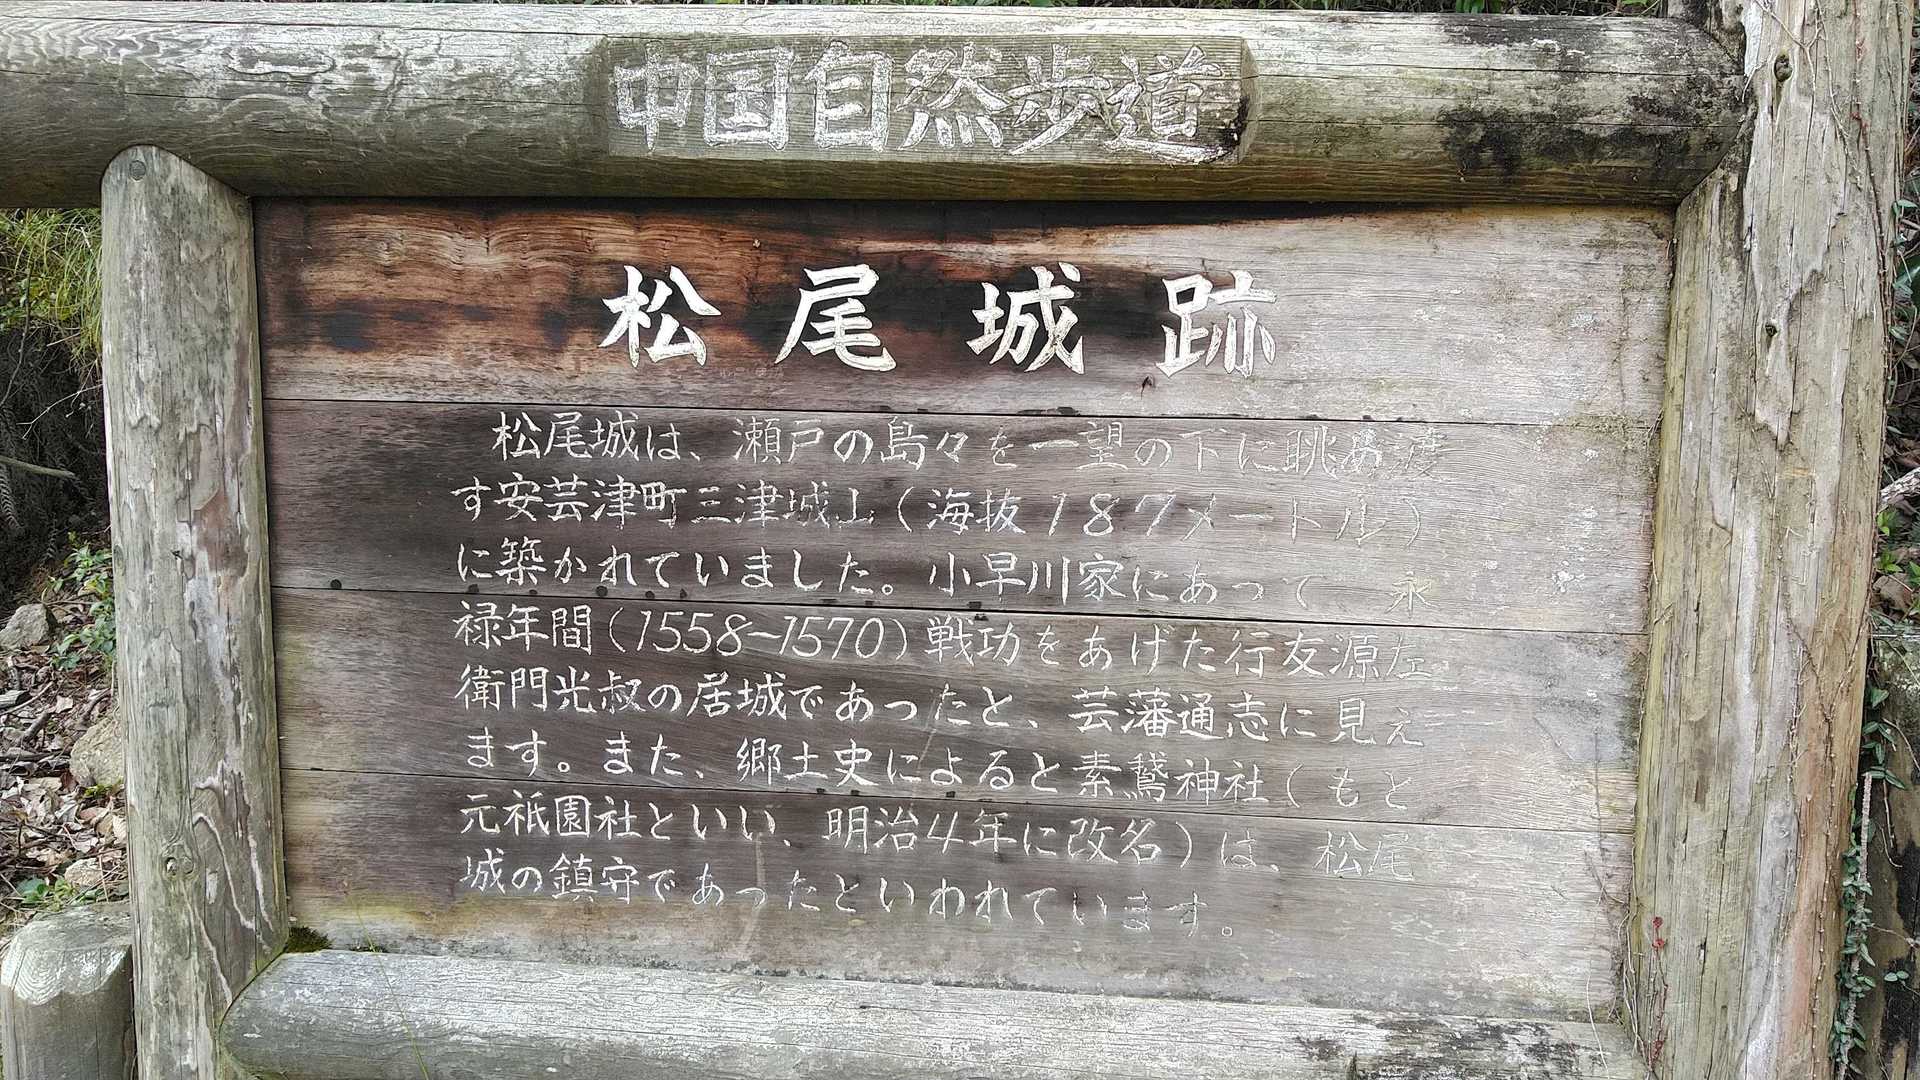 中国自然歩道
松尾城跡
松尾城は、瀬戸の島々を一望の下に眺め渡
す安芸津町三津城山（海抜187メートル）
に築かれていました。小早川家にあって 永
禄年間（1558~1570）戦功をあげた行友源左
衛門光叔の居城であったと、芸藩通志に見え
ます。また、郷土史によると素鵞神社（もと
元祇園社といい、明治4年に改名）は、松尾
城の鎮守であったといわれています。